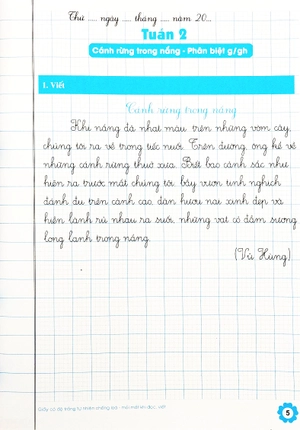 Thứ ..... ngày .... tháng .... năm 20...
Tuần 2
Cánh rừng trong nắng - Phân biệt g/gh
1. Viết
Cánh rừng trong nắng
Khi nắng đã nhạt màu trên những vòm cây,
chúng tôi ra về trong tiếc nuối. Trên đường, ông kể về
những cánh rừng thuở xưa. Biết bao cảnh sắc như
hiện ra trước mắt chúng tôi: bầy vượn tinh nghịch
đánh đu trên cành cao, đàn hươu nai xinh đẹp và
hiền lành rủ nhau ra suối, những vạt cỏ đẫm sương
long lanh trong nắng.
(Vũ Hùng)
5